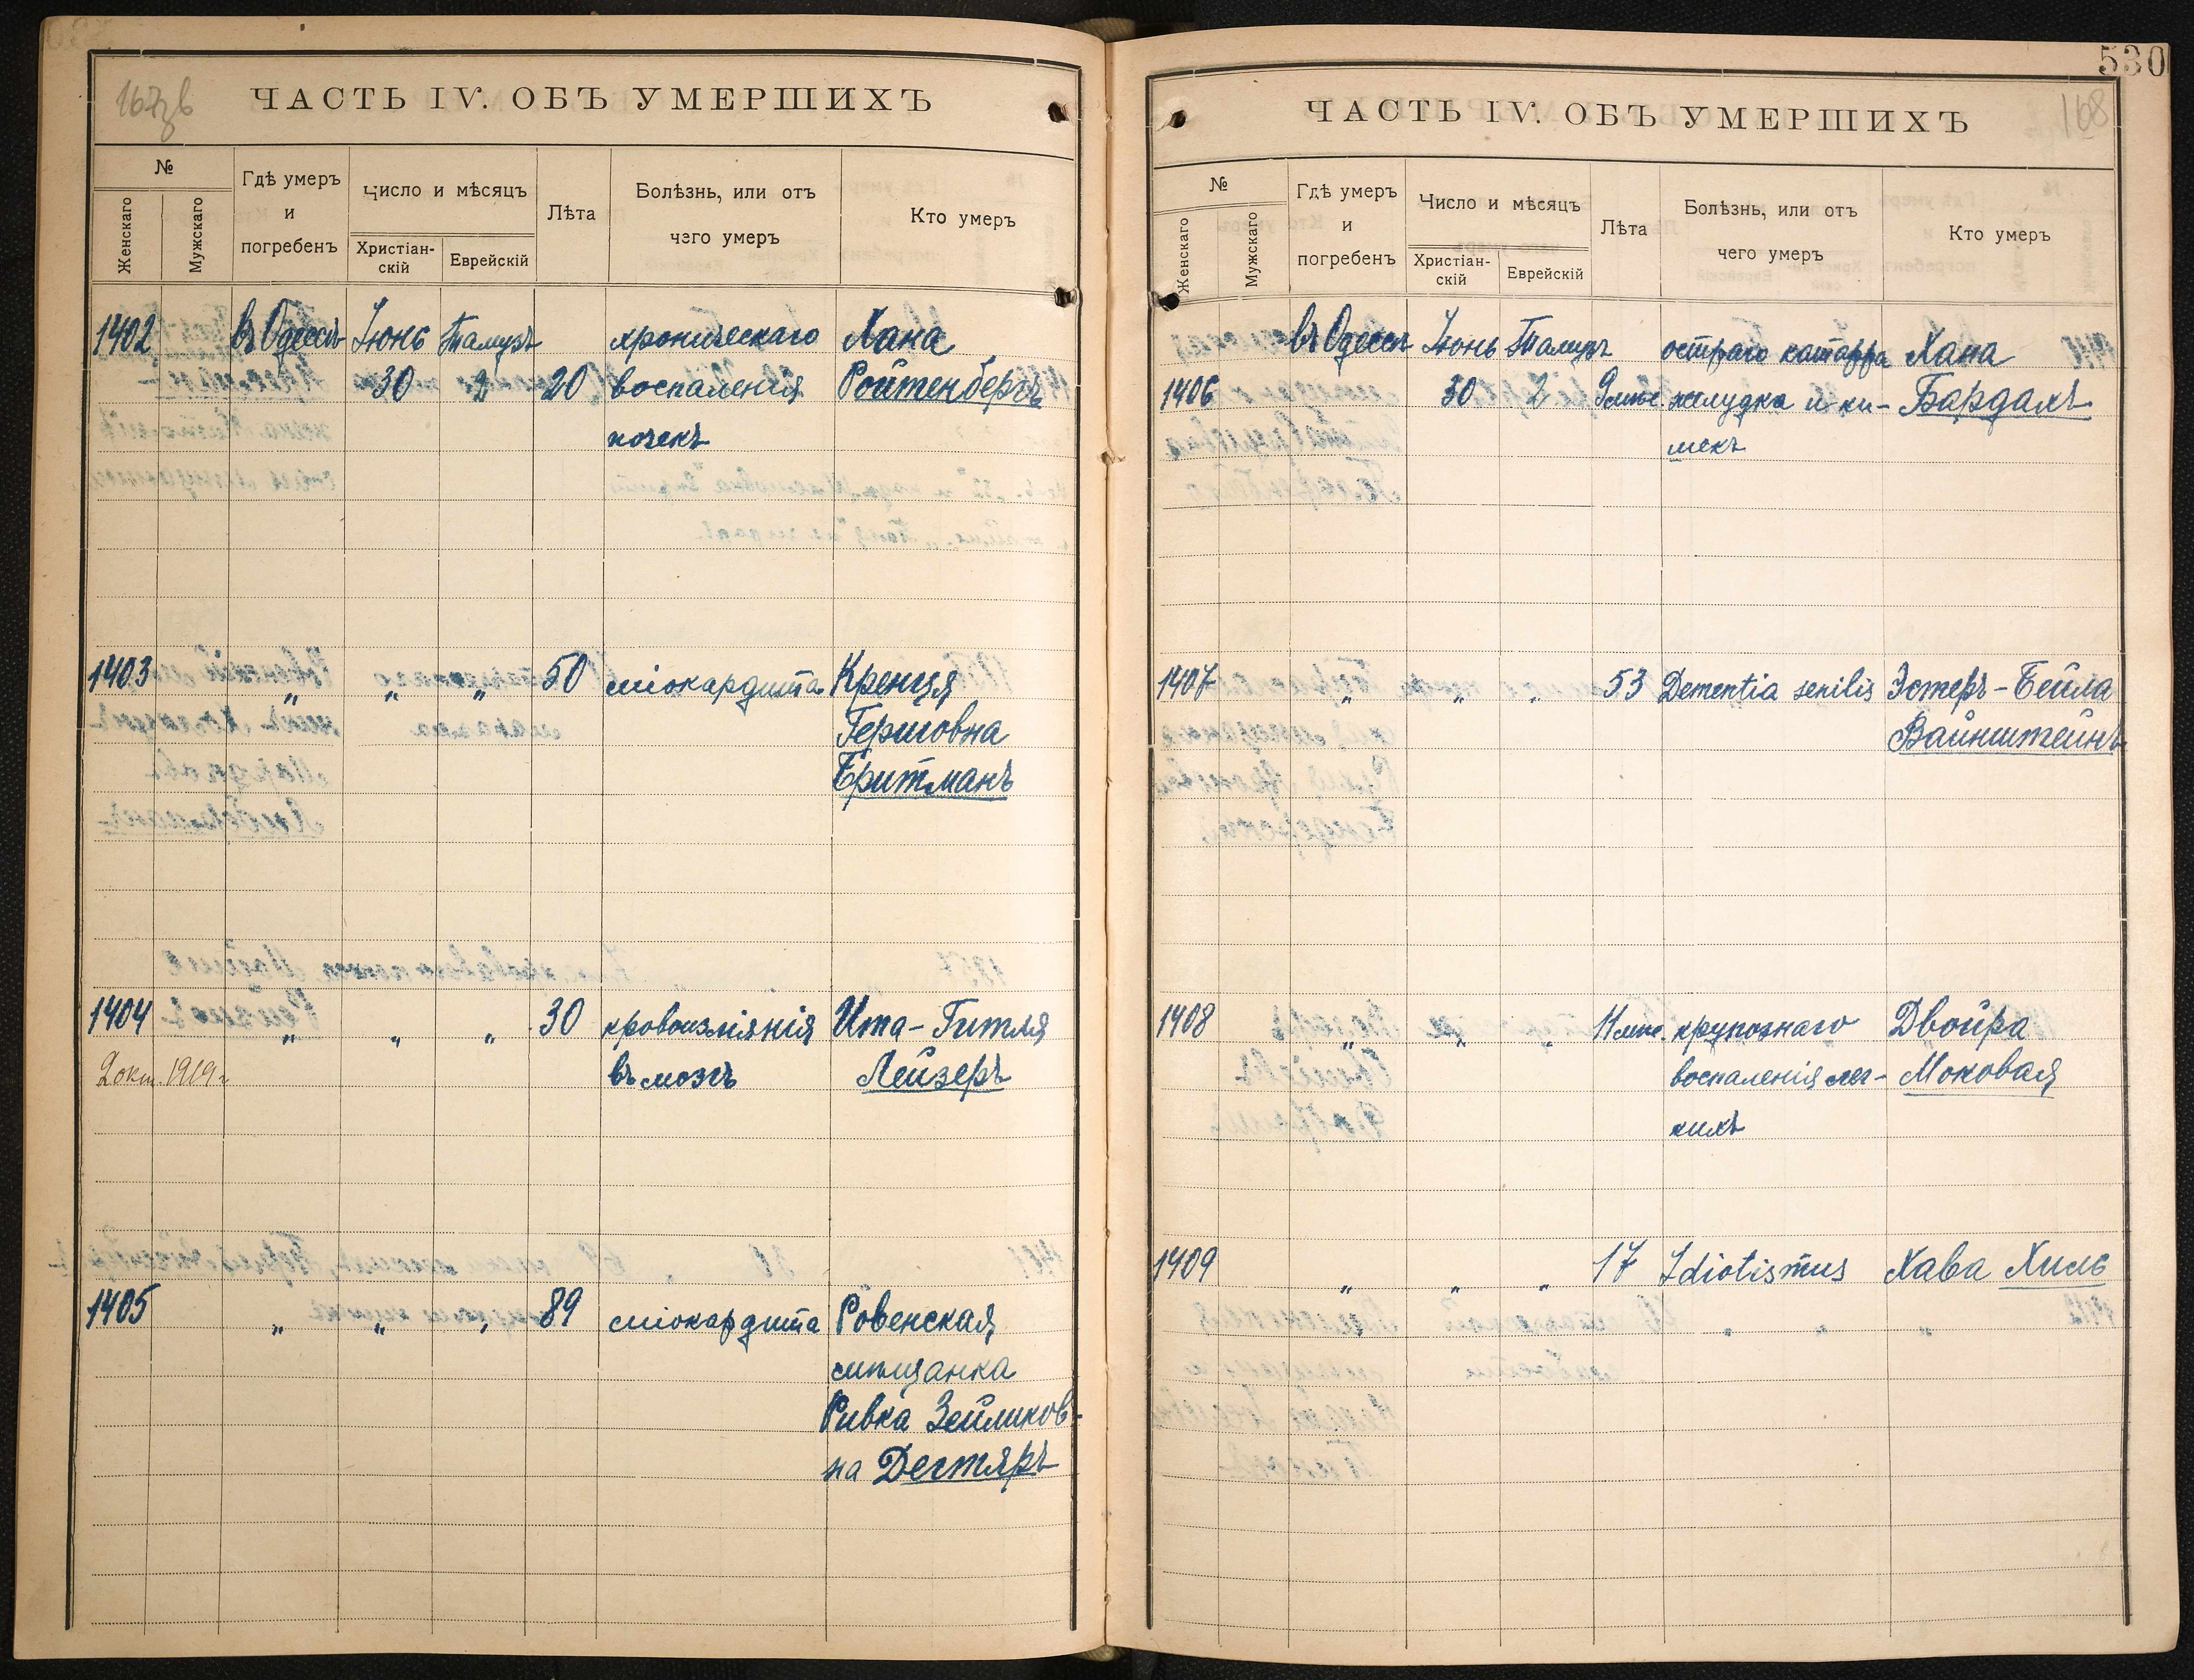 167 зв
ЧАСТЬ IV. ОБЪ УМЕРШИХЪ
№
Женскаго
Мужскаго
Гдѣ умеръ
и
погребенъ
Число и мѣсяцъ
Христіан-
скій
Еврейскій
Лѣта
Болѣзнь, или отъ
чего умеръ
Кто умеръ
1402 въ Одессѣ Іюнь Тамузъ хроническаго Хана
30 2 20 воспаленія Ройтенбергъ
почекъ
1403 „ „ „ 50 міокардита Кренця
Гершовна
Бритманъ
1404 „ „ „ 30 кровоизліянія Ита-Гитля
2 окт. 1919 г. въ мозгъ Лейзеръ
1405 „ „ „ 89 міокардита Ровенская
мѣщанка
Ривка Зейликов-
на Дегтяръ
530
168
ЧАСТЬ IV. ОБЪ УМЕРШИХЪ
№
Женскаго
Мужскаго
Гдѣ умеръ
и
погребенъ
Число и мѣсяцъ
Христіан-
скій
Еврейскій
Лѣта
Болѣзнь, или отъ
чего умеръ
Кто умеръ
въ Одессѣ Іюнь Тамузъ остраго катарра Хана
1406 30 2 9 мѣс. желудка и ки- Бардахъ
шекъ
1407 „ „ „ 53 Dementia senilis Эстеръ-Бейла
Вайнштейнъ
1408 „ „ „ 11 мѣс. крупознаго Двойра
воспаленія лег- Моковая
кихъ
1409 „ „ „ 17 Idiotismus Хава Хиль